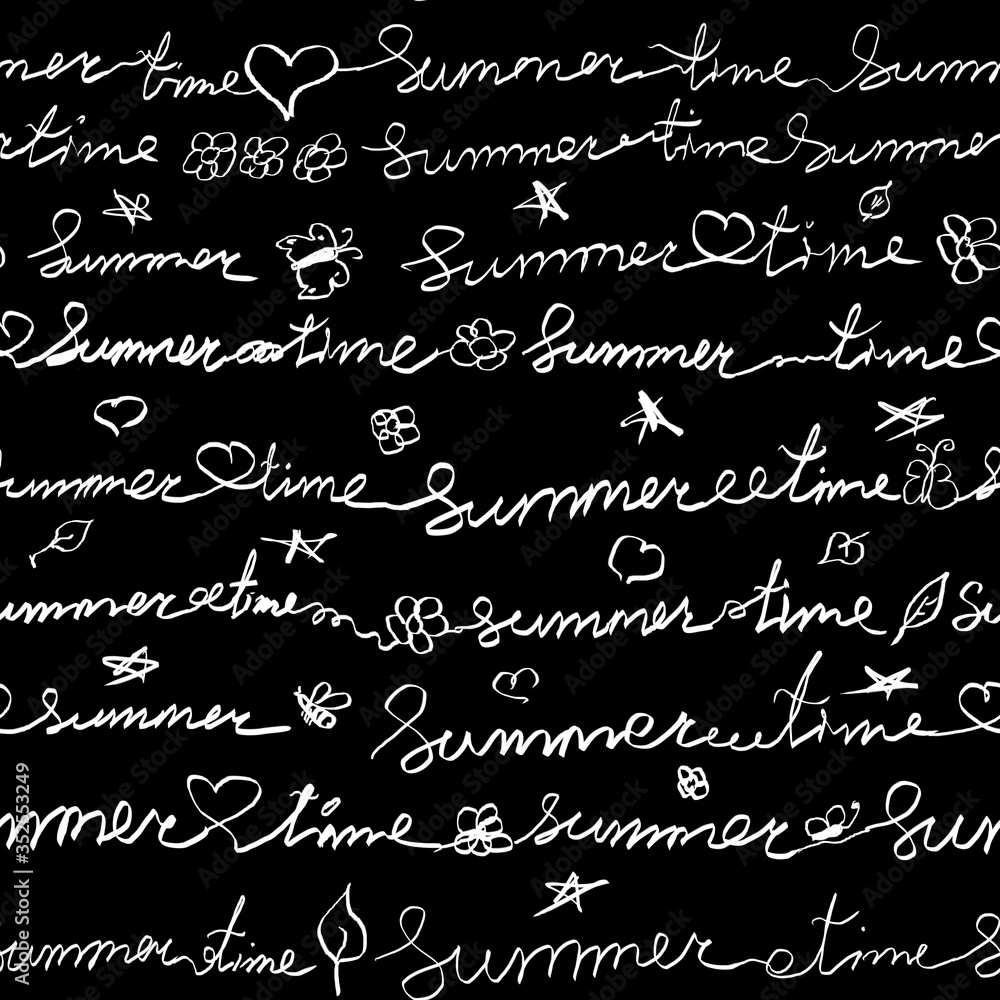 mer time Summer time Summ
rtime Summer time Summer
Summer Summer time
Summer time Summer time
ummer time Summer time S
ummer time summer time Su
summer Summer time
mmer time summer Sum
summer time Summer time S
Adobe Stock | #352653249